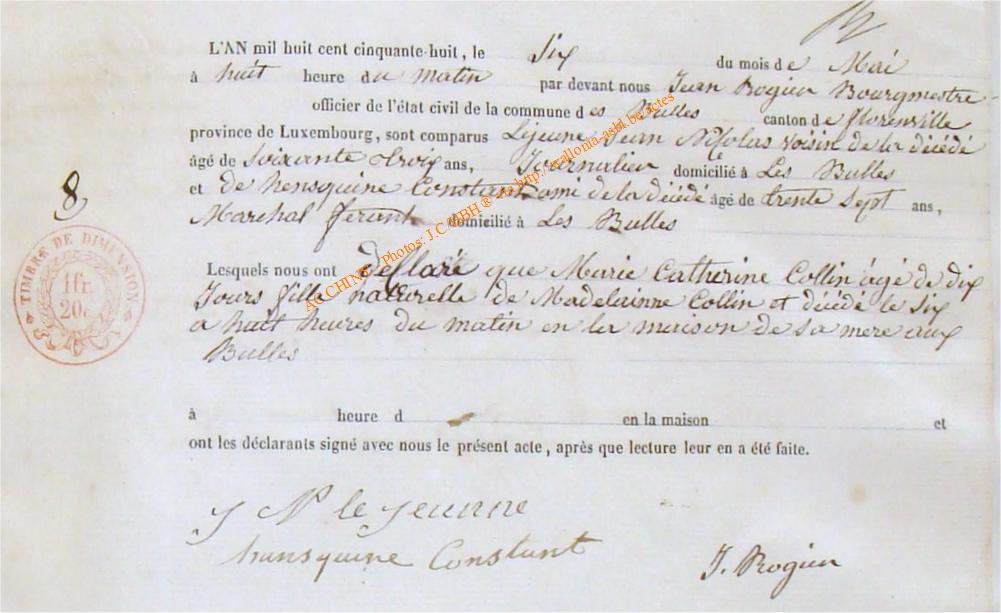 L'AN mil huit cent cinquante-huit, le Six du mois de Mai
à huit heure du matin par devant nous Jean Rogier Bourgmestre
officier de l'état civil de la commune des Bulles canton de florenville
province de Luxembourg, sont comparus Lejeune Jean Nicolas voisin de la décédé
âgé de Soixante troix ans, Journalier domicilié à Les Bulles
et de hensquine Constant ami de la décédé âgé de trente Sept ans,
Marechal ferant domicilié à Les Bulles
8
TIMBRE DE DIMENSION
1fr.
20c
Lesquels nous ont déClaré que Marie Catherine Collin âgé de dix
Jours fille naturelle de Madelainne Collin et décédé le Six
a huit heures du matin en la maison de Sa mere aux
Bulles
à heure d en la maison et
ont les déclarants signé avec nous le présent acte, après que lecture leur en a été faite.
J N le Jeunne
hansquine Constant
J. Rogier
Photos: J.C. MBH ® via http://wallonia-asbl.be/actes